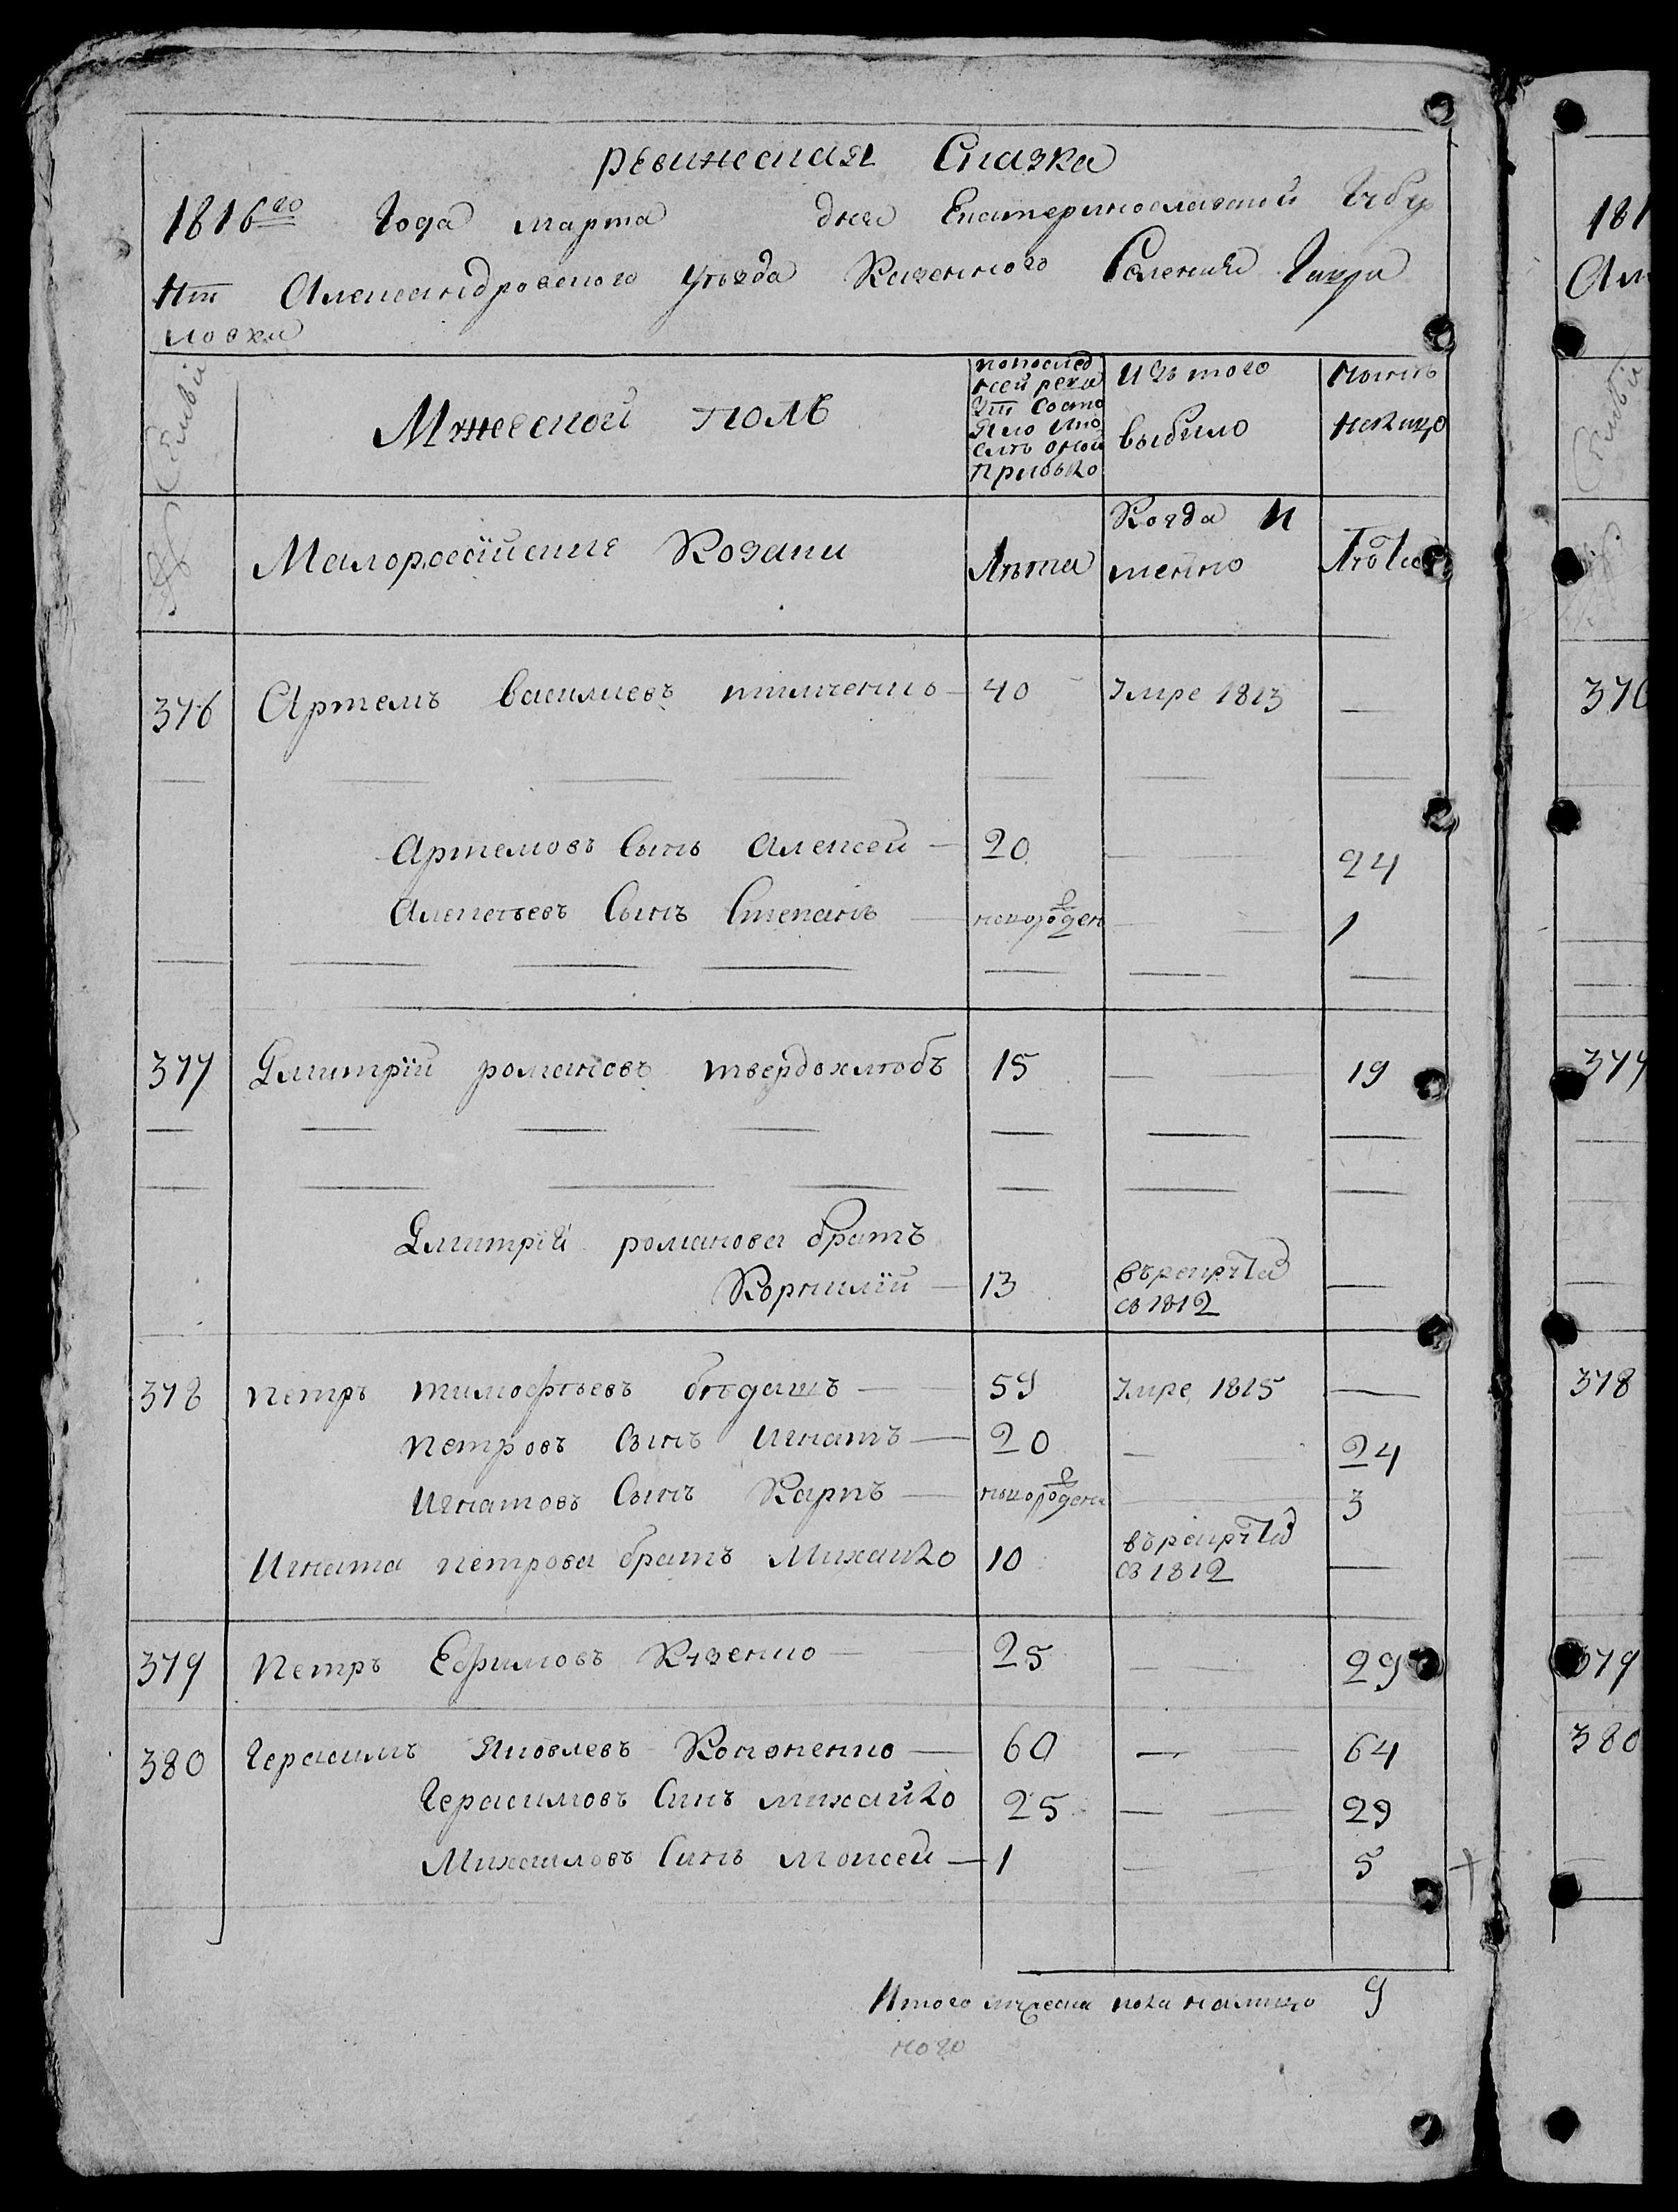 ревижская Сказка
1816го Года марта дня Екатеринославской Губер
ніи Александровского Уѣзда Казенного Селенія Гаври
ловки
Семьи
Мужеской полъ
попослед
ней реви
зіи состо
яло ипо
слѣ оной
прибыло
Изъ того
выбыло
Нынѣ
налицо
Малороссійские Козаки
Лѣта
Когда и
менно
Лѣта
376 Артемъ василиевъ 40 Умре 1813 —
Артемовъ Сынъ Алексей — 20 24
Алексѣевъ Сынъ Степанъ новорожден 1
377 Дмитрій романовъ твердохлѣбъ 15 — 19
Дмитрій романова братъ
Корнилій — 13 въ рекрути —
съ 1812
378 Петръ тимофѣевъ бѣдашъ — 59 Умре 1815 —
Петровъ Сынъ Игнатъ — 20 — 24
Игнатовъ Сынъ Карпъ — новорождены 3
Игната петрова братъ Михайло 10 въ рекрути —
съ 1812
379 Петръ Ефимовъ Кузенко — 25 — 29
380 Герасимъ Яковлевъ Кононенко — 60 — 64
Герасимовъ Синъ михайло 25 — 29
Михайловъ Синъ моисей — 1 — 5
Итого мужеска пола налицо 9
ного
181
376
377
378
379
380